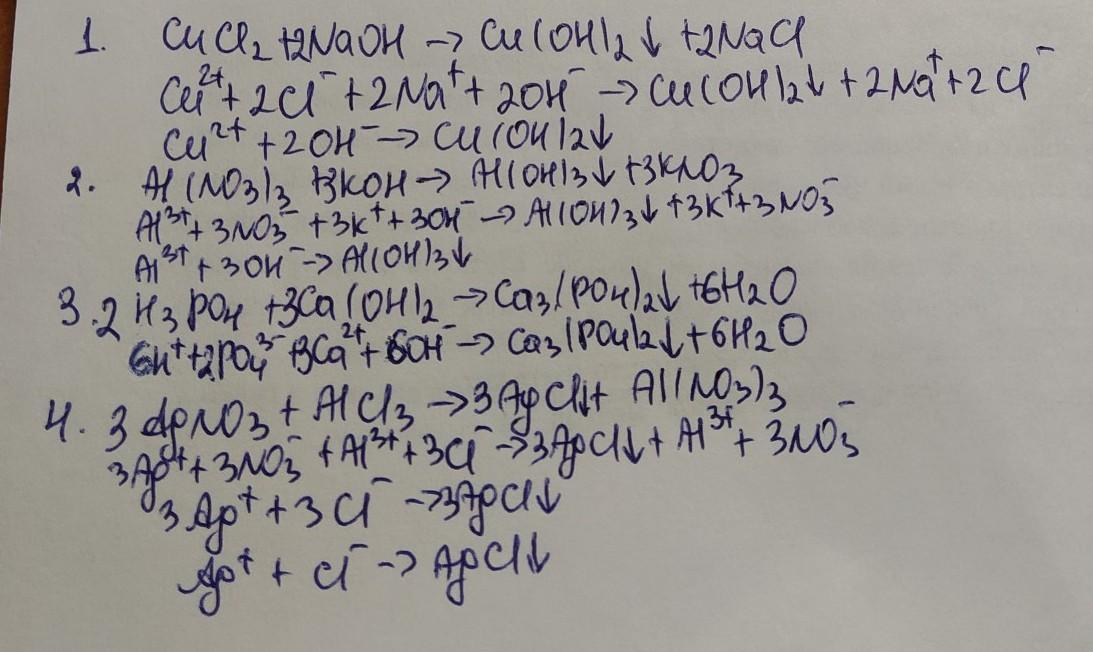 1. CuCl₂ + 2NaOH → Cu(OH)₂↓ + 2NaCl
Cu²⁺ + 2Cl⁻ + 2Na⁺ + 2OH⁻ → Cu(OH)₂↓ + 2Na⁺ + 2Cl⁻
Cu²⁺ + 2OH⁻ → Cu(OH)₂↓
2. Al(NO₃)₃ + 3KOH → Al(OH)₃↓ + 3KNO₃
Al³⁺ + 3NO₃⁻ + 3K⁺ + 3OH⁻ → Al(OH)₃↓ + 3K⁺ + 3NO₃⁻
Al³⁺ + 3OH⁻ → Al(OH)₃↓
3. 2H₃PO₄ + 3Ca(OH)₂ → Ca₃(PO₄)₂↓ + 6H₂O
6H⁺ + 2PO₄³⁻ + 3Ca²⁺ + 6OH⁻ → Ca₃(PO₄)₂↓ + 6H₂O
4. 3AgNO₃ + AlCl₃ → 3AgCl↓ + Al(NO₃)₃
3Ag⁺ + 3NO₃⁻ + Al³⁺ + 3Cl⁻ → 3AgCl↓ + Al³⁺ + 3NO₃⁻
3Ag⁺ + 3Cl⁻ → 3AgCl↓
Ag⁺ + Cl⁻ → AgCl↓